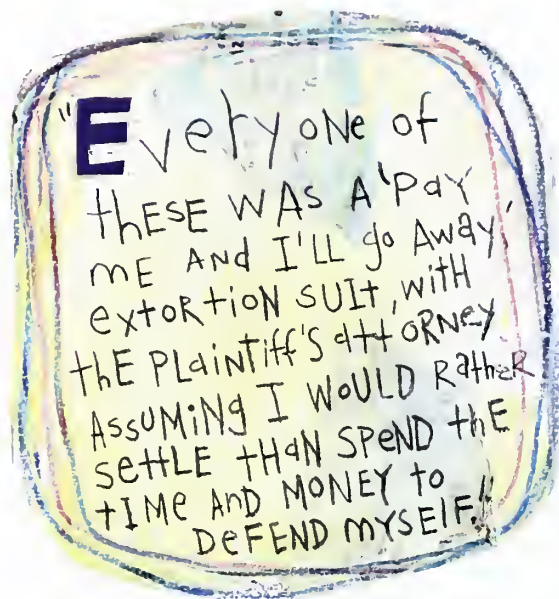 "Every one of
thESE WAS A 'PAY
mE AND I'LL go AwAy'
extoRtioN SUIt, with
thE PLaiNtiff'S attoRNey
AssUMiNg I WoULD RatheR
settLE tHaN SpeND thE
tIMe AnD MoNEY to
DeFEND mYSElF."